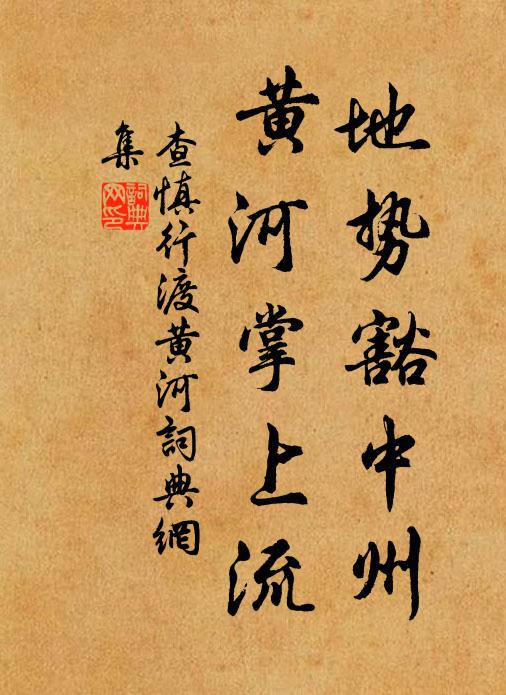 地势豁中州
黄河掌上流
查慎行渡黄河詞典網
集
詞典
网印